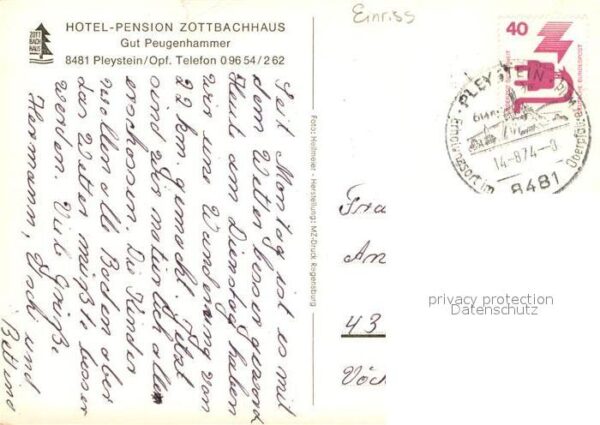 Einriss
HOTEL-PENSION ZOTTBACHHAUS
Gut Peugenhammer
8481 Pleystein/Opf. Telefon 0 96 54 / 2 62
ZOTT
BACH
HAUS
Seit Montag ist es mit
dem Wetter besser geword
Heut am Dienstag haben
wir eine Wanderung von
22 km. gemacht. Jetzt
sind wir natürlich alle
erschossen. Die Kinder
wollen alle Baden aber
das Wetter müßte besser
werden. Viel Grüße
Hermann, und
Bettina
Foto: Heilmeier - Herstellung: MZ-Druck Regensburg
40
DEUTSCHE BUNDESPOST
PLEYSTEIN
14-8.74-9
Erholungsort im Oberpfälz.
8481
Fra
An
43
Vöc
privacy protection
Datenschutz